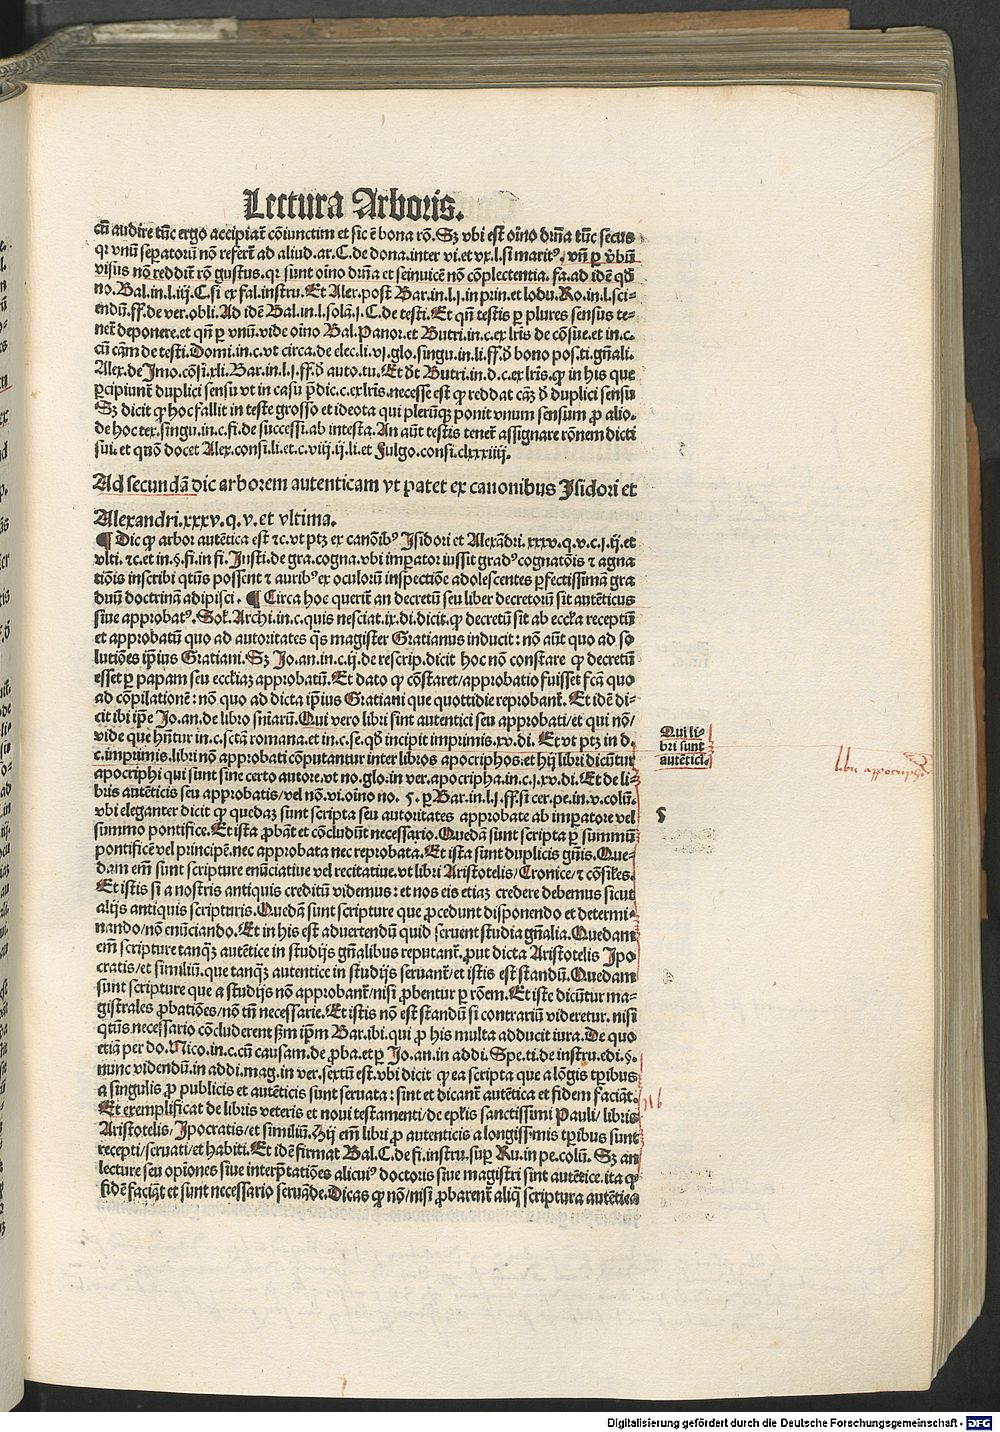 Lectura Arboris.
cū audire tūc ergo accipiat̄ cōiunctim et sic ē bona rō. Sꝫ vbi est oīno dr̄na tūc secus
qr vnū separatorū nō refert̄ ad aliud. ar. C. de dona. inter vi. et vx. l. si maritꝰ. vn̄ ꝑ v̄bū
visus nō reddit̄ rō gustus. qr sunt oīno dr̄na et seinuicē nō cōplectentia. fa. ad idē qd̄
no. Bal. in. l. iij. C. si ex fal. instru. Et Alex. post Bar. in. l. j. in prin. et lodu. Ro. in. l. sci-
endū. ff. de ver. obli. Ad idē Bal. in. l. solā. j. C. de testi. Et qn̄ testis ꝑ plures sensus te-
net̄ deponere. et qn̄ ꝑ vnū. vide oīno Bal. Panor. et Butri. in. c. ex lr̄is de cōsue. et in. c.
cū cām de testi. Domi. in. c. vt circa. de elec. li. vj. glo. singu. in. li. ff. d̄ bono pos. ti. gn̄ali.
Alex. de Imo. cōsi. xli. Bar. in. l. j. ff. d̄ auto. tu. Et dt̄ Butri. in. d. c. ex lr̄is. ꝙ in his que
ꝑcipiunt̄ duplici sensu vt in casu p̄dic. c. ex lr̄is. necesse est ꝙ reddat cāꝫ d̄ duplici sensu
Sꝫ dicit ꝙ hoc fallit in teste grosso et ideota qui plerūqꝫ ponit vnum sensum ꝓ alio.
de hoc tex. singu. in. c. fi. de successi. ab intesta. An aūt testis tenet̄ assignare rōnem dicti
sui. et quō docet Alex. consi. li. et. c. viij. ij. li. et Fulgo. consi. clxxxiiij.
Ad secundā dic arborem autenticam vt patet ex canonibus Isidori et
Alexandri. xxxv. q. v. et vltima.
¶ Dic ꝙ arbor autētica est ⁊c. vt ptꝫ ex canōibꝰ Isidori et Alexādri. xxxv. q. v. c. j. ij. et
vlti. ⁊c. et in. §. fi. in fi. Insti. de gra. cogna. vbi imꝑator iussit gradꝰ cognatōis ⁊ agna
tiōis inscribi qtn̄s possent ⁊ auribꝰ ex oculorū inspectiōe adolescentes ꝑfectissimā gra
duū doctrinā adipisci. ¶ Circa hoc querit̄ an decretū seu liber decretorū sit autēticus
siue approbatꝰ. Sol. Archi. in. c. quis nesciat. ix. di. dicit. ꝙ decretū sit ab eccl̄ia receptū
et approbatū quo ad autoritates q̄s magister Gratianus inducit: nō aūt quo ad so
lutiōes ip̄ius Gratiani. Sꝫ Jo. an. in. c. ij. de rescrip. dicit hoc nō constare ꝙ decretū
esset ꝑ papam seu eccl̄iaꝫ approbatū. Et dato ꝙ cōstaret/approbatio fuisset fcā quo
ad cōpilationē: nō quo ad dicta ip̄ius Gratiani que quottidie reprobant̄. Et idē di-
cit ibi ip̄e Jo. an. de libro sn̄iarū. Qui vero libri sint autentici seu approbati/et qui nō/
vide que hn̄tur in. c. sctā romana. et in. c. se. qd̄ incipit imprimis. xv. di. Et vt ptꝫ in d.
c. imprimis. libri nō approbati cōputantur inter libros apocriphos. et hij libri dicūtur
apocriphi qui sunt sine certo autore. vt no. glo. in ver. apocripha. in. c. j. xv. di. Et de li-
bris autēticis seu approbatis/vel nō. vi. oīno no. §. ꝑ Bar. in. l. j. ff. si cer. pe. in. v. colū.
vbi eleganter dicit ꝙ quedaꝫ sunt scripta seu autoritates approbate ab imꝑatore vel
summo pontifice. Et ista ꝓbāt et cōcludūt necessario. Quedā sunt scripta ꝑ summū
pontificē vel principē. nec approbata nec reprobata. Et ista sunt duplicis gn̄is. Que-
dam em̄ sunt scripture enūciatiue vel recitatiue. vt libri Aristotelis/Cronice/⁊ cōsiles.
Et istis si a nostris antiquis creditū videmus: et nos eis etiaꝫ credere debemus sicut
alijs antiquis scripturis. Quedā sunt scripture que ꝓcedunt disponendo et determi-
nando/nō enūciando. Et in his est aduertendū quid seruent studia gn̄alia. Quedam
em̄ scripture tanqꝫ autētice in studijs gn̄alibus reputant̄. ꝓut dicta Aristotelis Ipo
cratis/et similiū. que tanqꝫ autentice in studijs seruant̄/et istis est standū. Quedam
sunt scripture que a studijs nō approbant̄/nisi ꝓbentur ꝑ rōem. Et iste dicūtur ma-
gistrales ꝓbatiōes/nō tn̄ necessarie. Et istis nō est standū si contrariū videretur. nisi
qtn̄s necessario cōcluderent s̄m ip̄m Bar. ibi. qui ꝓ his multa adducit iura. De quo
etiā per do. Nico. in. c. cū causam. de ꝓba. et ꝑ Jo. an. in addi. Spe. ti. de instru. edi. §.
nunc videndū. in addi. mag. in ver. sextū est. vbi dicit ꝙ ea scripta que a lōgis tꝑibus
a singulis ꝓ publicis et autēticis sunt seruata: sint et dicant̄ autētica et fidem faciāt.
Et exemplificat de libris veteris et noui testamenti/de epl̄is sanctissimi Pauli/libris
Aristotelis/Ipocratis/et similiū. Hij em̄ libri ꝓ autenticis a longissimis tꝑibus sunt
recepti/seruati/et habiti. Et idē firmat Bal. C. de fi. instru. suꝑ Ru. in pe. colū. Sꝫ an
lecture seu opiōnes siue interp̄tatiōes alicuiꝰ doctoris siue magistri sint autētice. ita ꝙ
fidē faciāt et sunt necessario seruāde. Dicas ꝙ nō/nisi ꝓbarent̄ aliq̄ scriptura autētica
Qui li-
bri sunt
autētici.
libri appocriphi
§
Digitalisierung gefördert durch die Deutsche Forschungsgemeinschaft - DFG